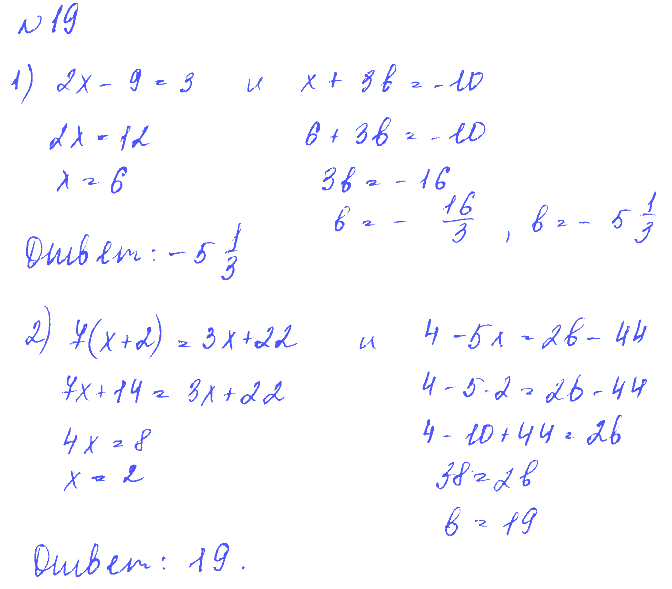 № 19
1) 2x - 9 = 3 и x + 3b = -10
2x = 12 6 + 3b = -10
x = 6 3b = -16
b = - 16/3, b = - 5 1/3
Ответ: - 5 1/3
2) 7(x+2) = 3x+22 и 4 - 5x = 2b - 44
7x+14 = 3x+22 4 - 5·2 = 2b - 44
4x = 8 4 - 10 + 44 = 2b
x = 2 38 = 2b
b = 19
Ответ: 19.